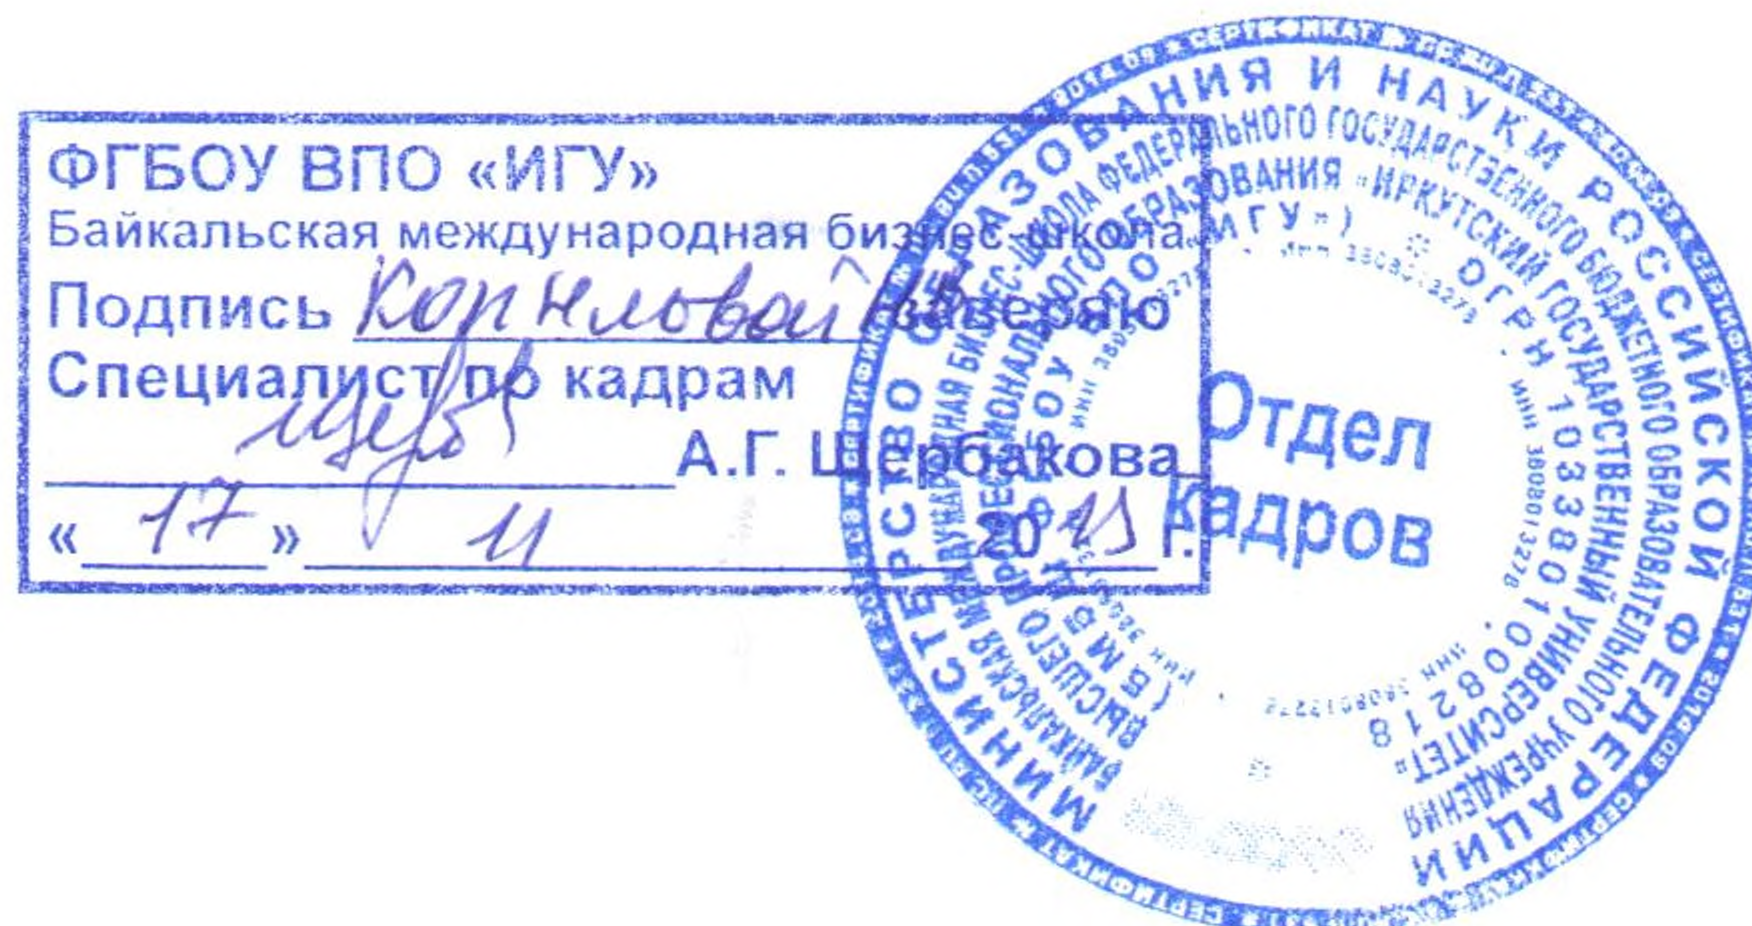 ФГБОУ ВПО «ИГУ»
Байкальская международная бизнес-школа
Подпись Корниловой заверяю
Специалист по кадрам
А.Г. Щербакова
«17» 11 20 г.
МИНИСТЕРСТВО ОБРАЗОВАНИЯ И НАУКИ РОССИЙСКОЙ ФЕДЕРАЦИИ
БАЙКАЛЬСКАЯ МЕЖДУНАРОДНАЯ БИЗНЕС-ШКОЛА ФЕДЕРАЛЬНОГО ГОСУДАРСТВЕННОГО БЮДЖЕТНОГО ОБРАЗОВАТЕЛЬНОГО УЧРЕЖДЕНИЯ
ВЫСШЕГО ПРОФЕССИОНАЛЬНОГО ОБРАЗОВАНИЯ «ИРКУТСКИЙ ГОСУДАРСТВЕННЫЙ УНИВЕРСИТЕТ»
(БМБШ ФГБОУ ВПО «ИГУ») * ОГРН 1033801008218
ИНН 3808013278
Отдел
кадров